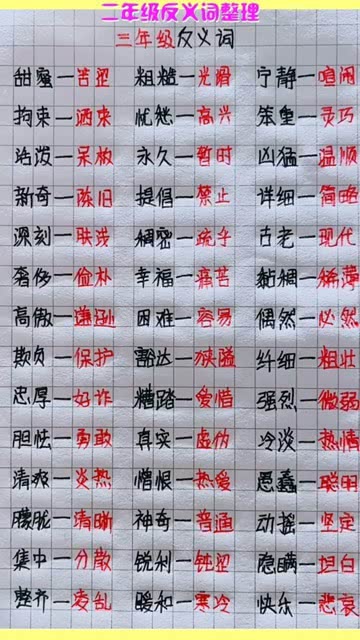 二年级反义词整理
三年级反义词
甜蜜—苦涩 粗糙—光滑 宁静—喧闹
拘束—洒来 忧愁—高兴 笨重—灵巧
活泼—呆板 永久—暂时 凶猛—温顺
新奇—陈旧 提倡—禁止 详细—简略
深刻—肤浅 稠密—疏乎 古老—现代
奢侈—俭朴 幸福—痛苦 黏稠—稀薄
高傲—谦逊 困难—容易 偶然—必然
欺负—保护 豁达—狭隘 纤细—粗壮
忠厚—奸诈 糟踏—爱惜 强烈—微弱
胆怯—勇敢 真实—虚伪 冷淡—热情
清爽—炎热 憎恨—热爱 愚蠢—聪明
朦胧—清晰 神奇—普通 动摇—坚定
集中—分散 锐利—钝涩 隐瞒—坦白
整齐—凌乱 暖和—寒冷 快乐—悲哀